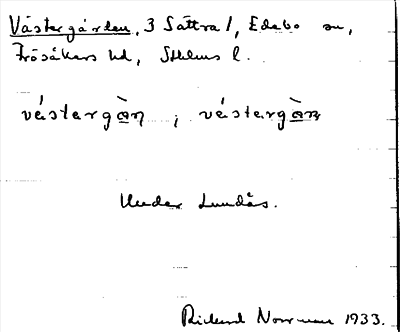 Västergården, 3 Sättra /, Edebo sn,
Frösåkers hd, Sthlms l.
vástergàn̥ ; västergàn
Under Lundås.
Rickard Norrman 1933.